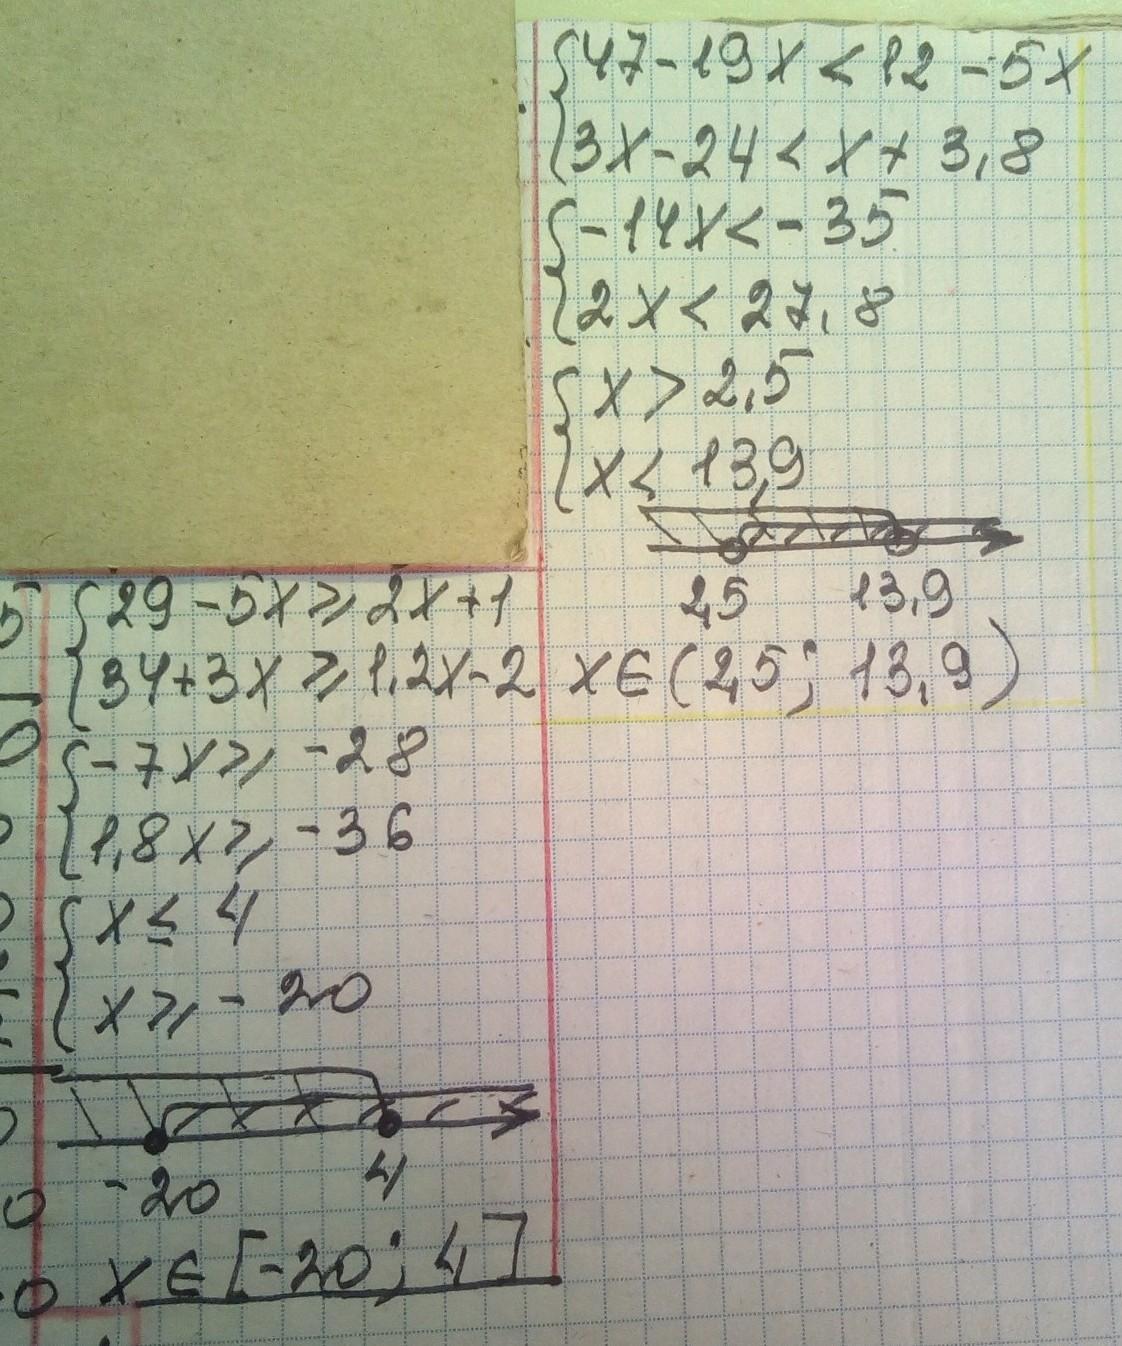 {47-19x<12-5x
3x-24<x+3,8
{-14x<-35
2x<27,8
{x>2,5
x<13,9
2,5 13,9
x∈(2,5; 13,9)
{29-5x⩾2x+1
34+3x⩾1,2x-2
{-7x⩾-28
1,8x⩾-36
{x≤4
x⩾-20
-20 4
x∈[-20; 4]